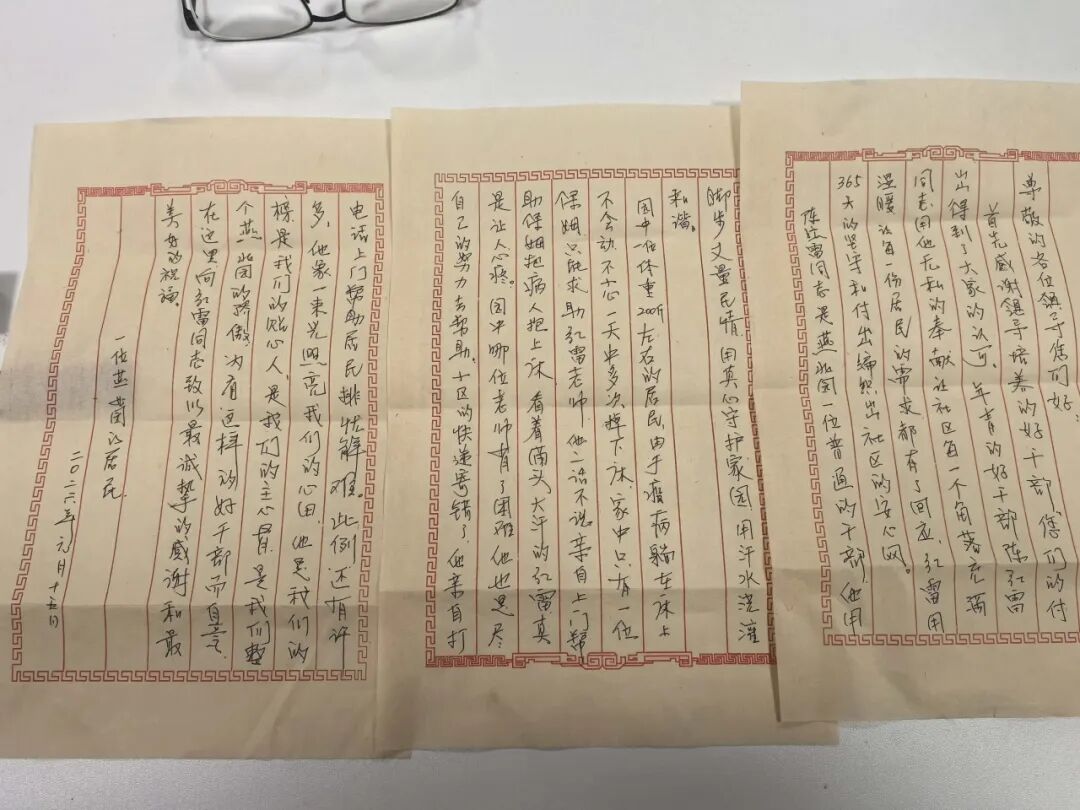 尊敬的各位领导您们好:
首先感谢领导培养的好干部,您们的付
出得到了大家的认可。年青的好干部陈红雷
同志用他无私的奉献让社区每一个角落充满
温暖让每一份居民的需求都有了回应,红雷用
365天的坚守和付出编织出社区的安心网。
陈红雷同志是燕北园一位普通的干部,他用
脚步丈量民情,用真心守护家园,用汗水浇灌
和谐。
园中一位体重200斤左右的居民,由于瘫病躺在床上
不会动,不小心一天中多次掉下床,家中只有一位
保姆,只能求助红雷老师,他二话不说亲自上门帮
助保姆把病人抱上床,看着满头大汗的红雷真
是让人心疼。园中哪位老师有了困难他也是尽
自己的努力去帮助。十区的快递寄错了,他亲自打
电话上门帮助居民排忧解难。此例还有许
多,他象一束光照亮我们的心田,他是我们的
榜是我们的贴心人,是我们的主心骨,是我们整
个燕北园的骄傲,为有这样的好干部而自豪,
在这里向红雷同志致以最诚挚的感谢和最
美好的祝福。
一位燕北园的居民
二〇二六年元月十五日